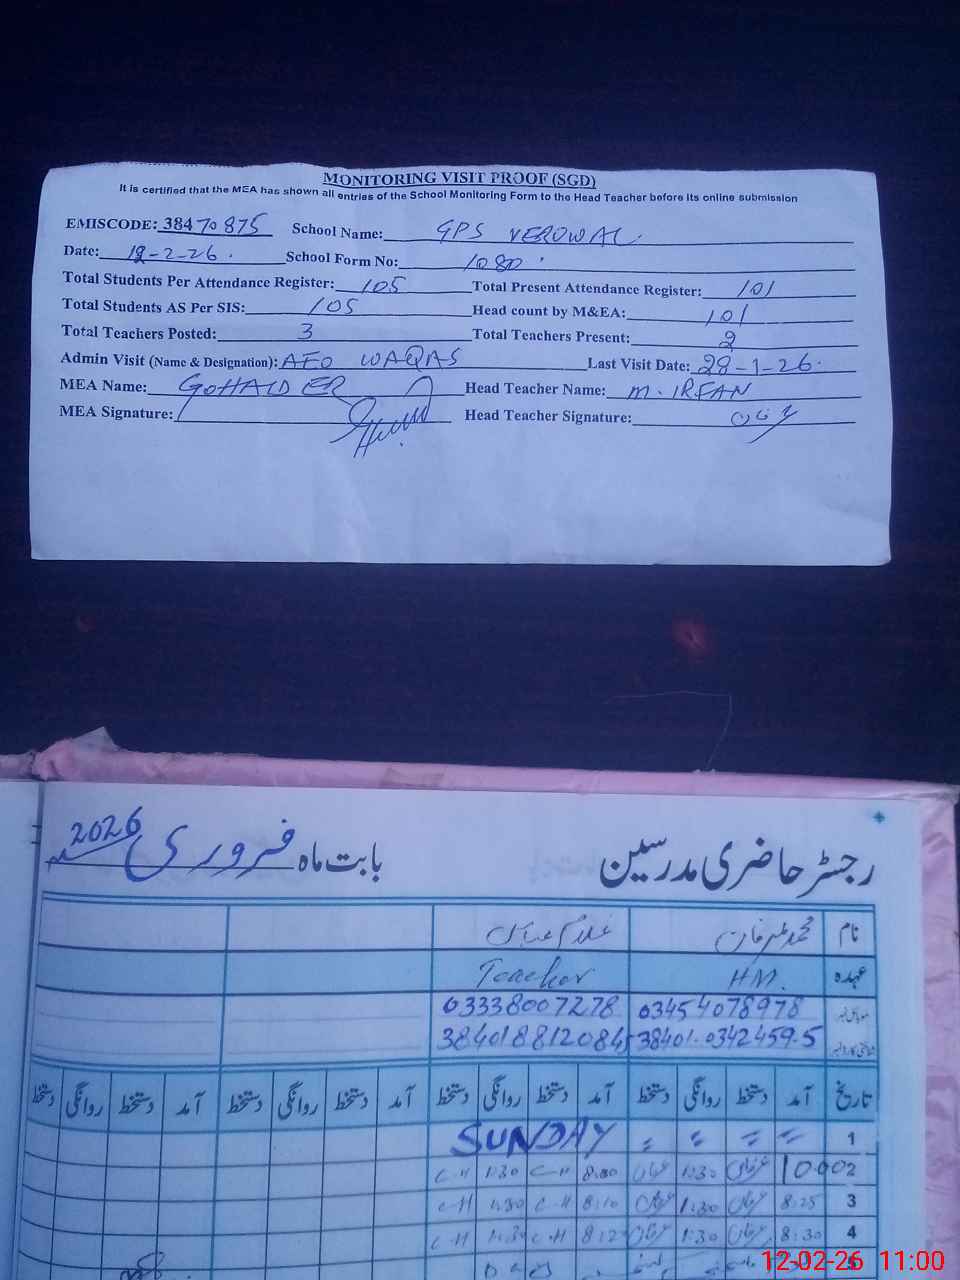 MONITORING VISIT PROOF (SGD)
It is certified that the MEA has shown all entries of the School Monitoring Form to the Head Teacher before its online submission
EMISCODE: 38470875 School Name: GPS VEROWAL
Date: 12-2-26 School Form No: 1080
Total Students Per Attendance Register: 105 Total Present Attendance Register: 101
Total Students AS Per SIS: 105 Head count by M&EA: 101
Total Teachers Posted: 3 Total Teachers Present: 2
Admin Visit (Name & Designation): AEO WAQAS Last Visit Date: 28-1-26
MEA Name: Head Teacher Name: M. IRFAN
MEA Signature: Head Teacher Signature: عرفان
رجسٹر حاضری مدرسین بابت ماہ فروری 2026
نام محمد عرفان غلام عباس
عہدہ HM. Teacher
موبائل نمبر 03454078978 03338007278
شناختی کارڈ نمبر 38401-0342459-5
تاریخ آمد دستخط روانگی دستخط آمد دستخط روانگی دستخط آمد دستخط روانگی دستخط آمد دستخط روانگی دستخط
1 〃 〃 〃 〃 SUNDAY
2 1000 عرفان 1:30 عرفان 8:00 C-H 1:30 C-H
3 8:25 عرفان 1:30 عرفان 8:10 C-H 1:30 C-H
4 8:30 عرفان 1:30 عرفان C-H 1:30 C-H
5
12-02-26 11:00